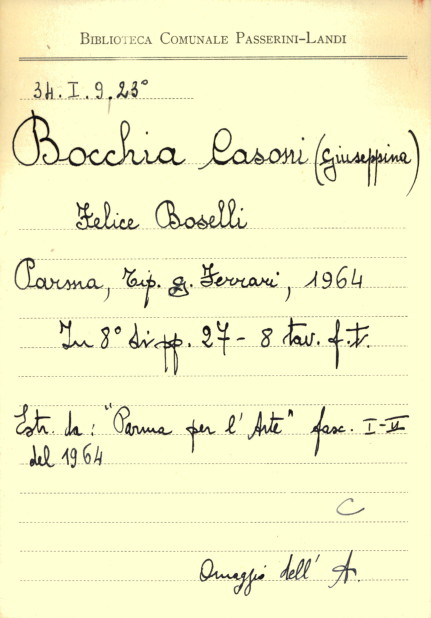 BIBLIOTECA COMUNALE PASSERINI-LANDI
34.I.9.23°
Bocchia Casoni (Giuseppina)
Felice Boselli
Parma, Tip. G. Ferrari, 1964
In 8° di pp. 27 - 8 tav. f.t.
Estr. da: "Parma per l'Arte" fasc. I-II
del 1964
C
Omaggio dell' A.